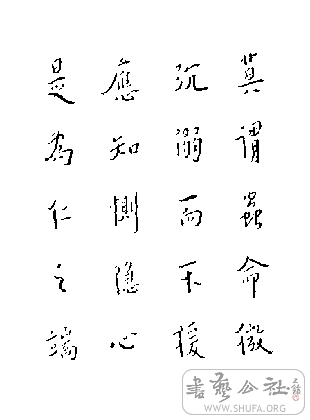 莫謂蟲命微
沉溺而不援
應知惻隱心
是為仁之端
書藝公社
WWW.SHUFA.ORG